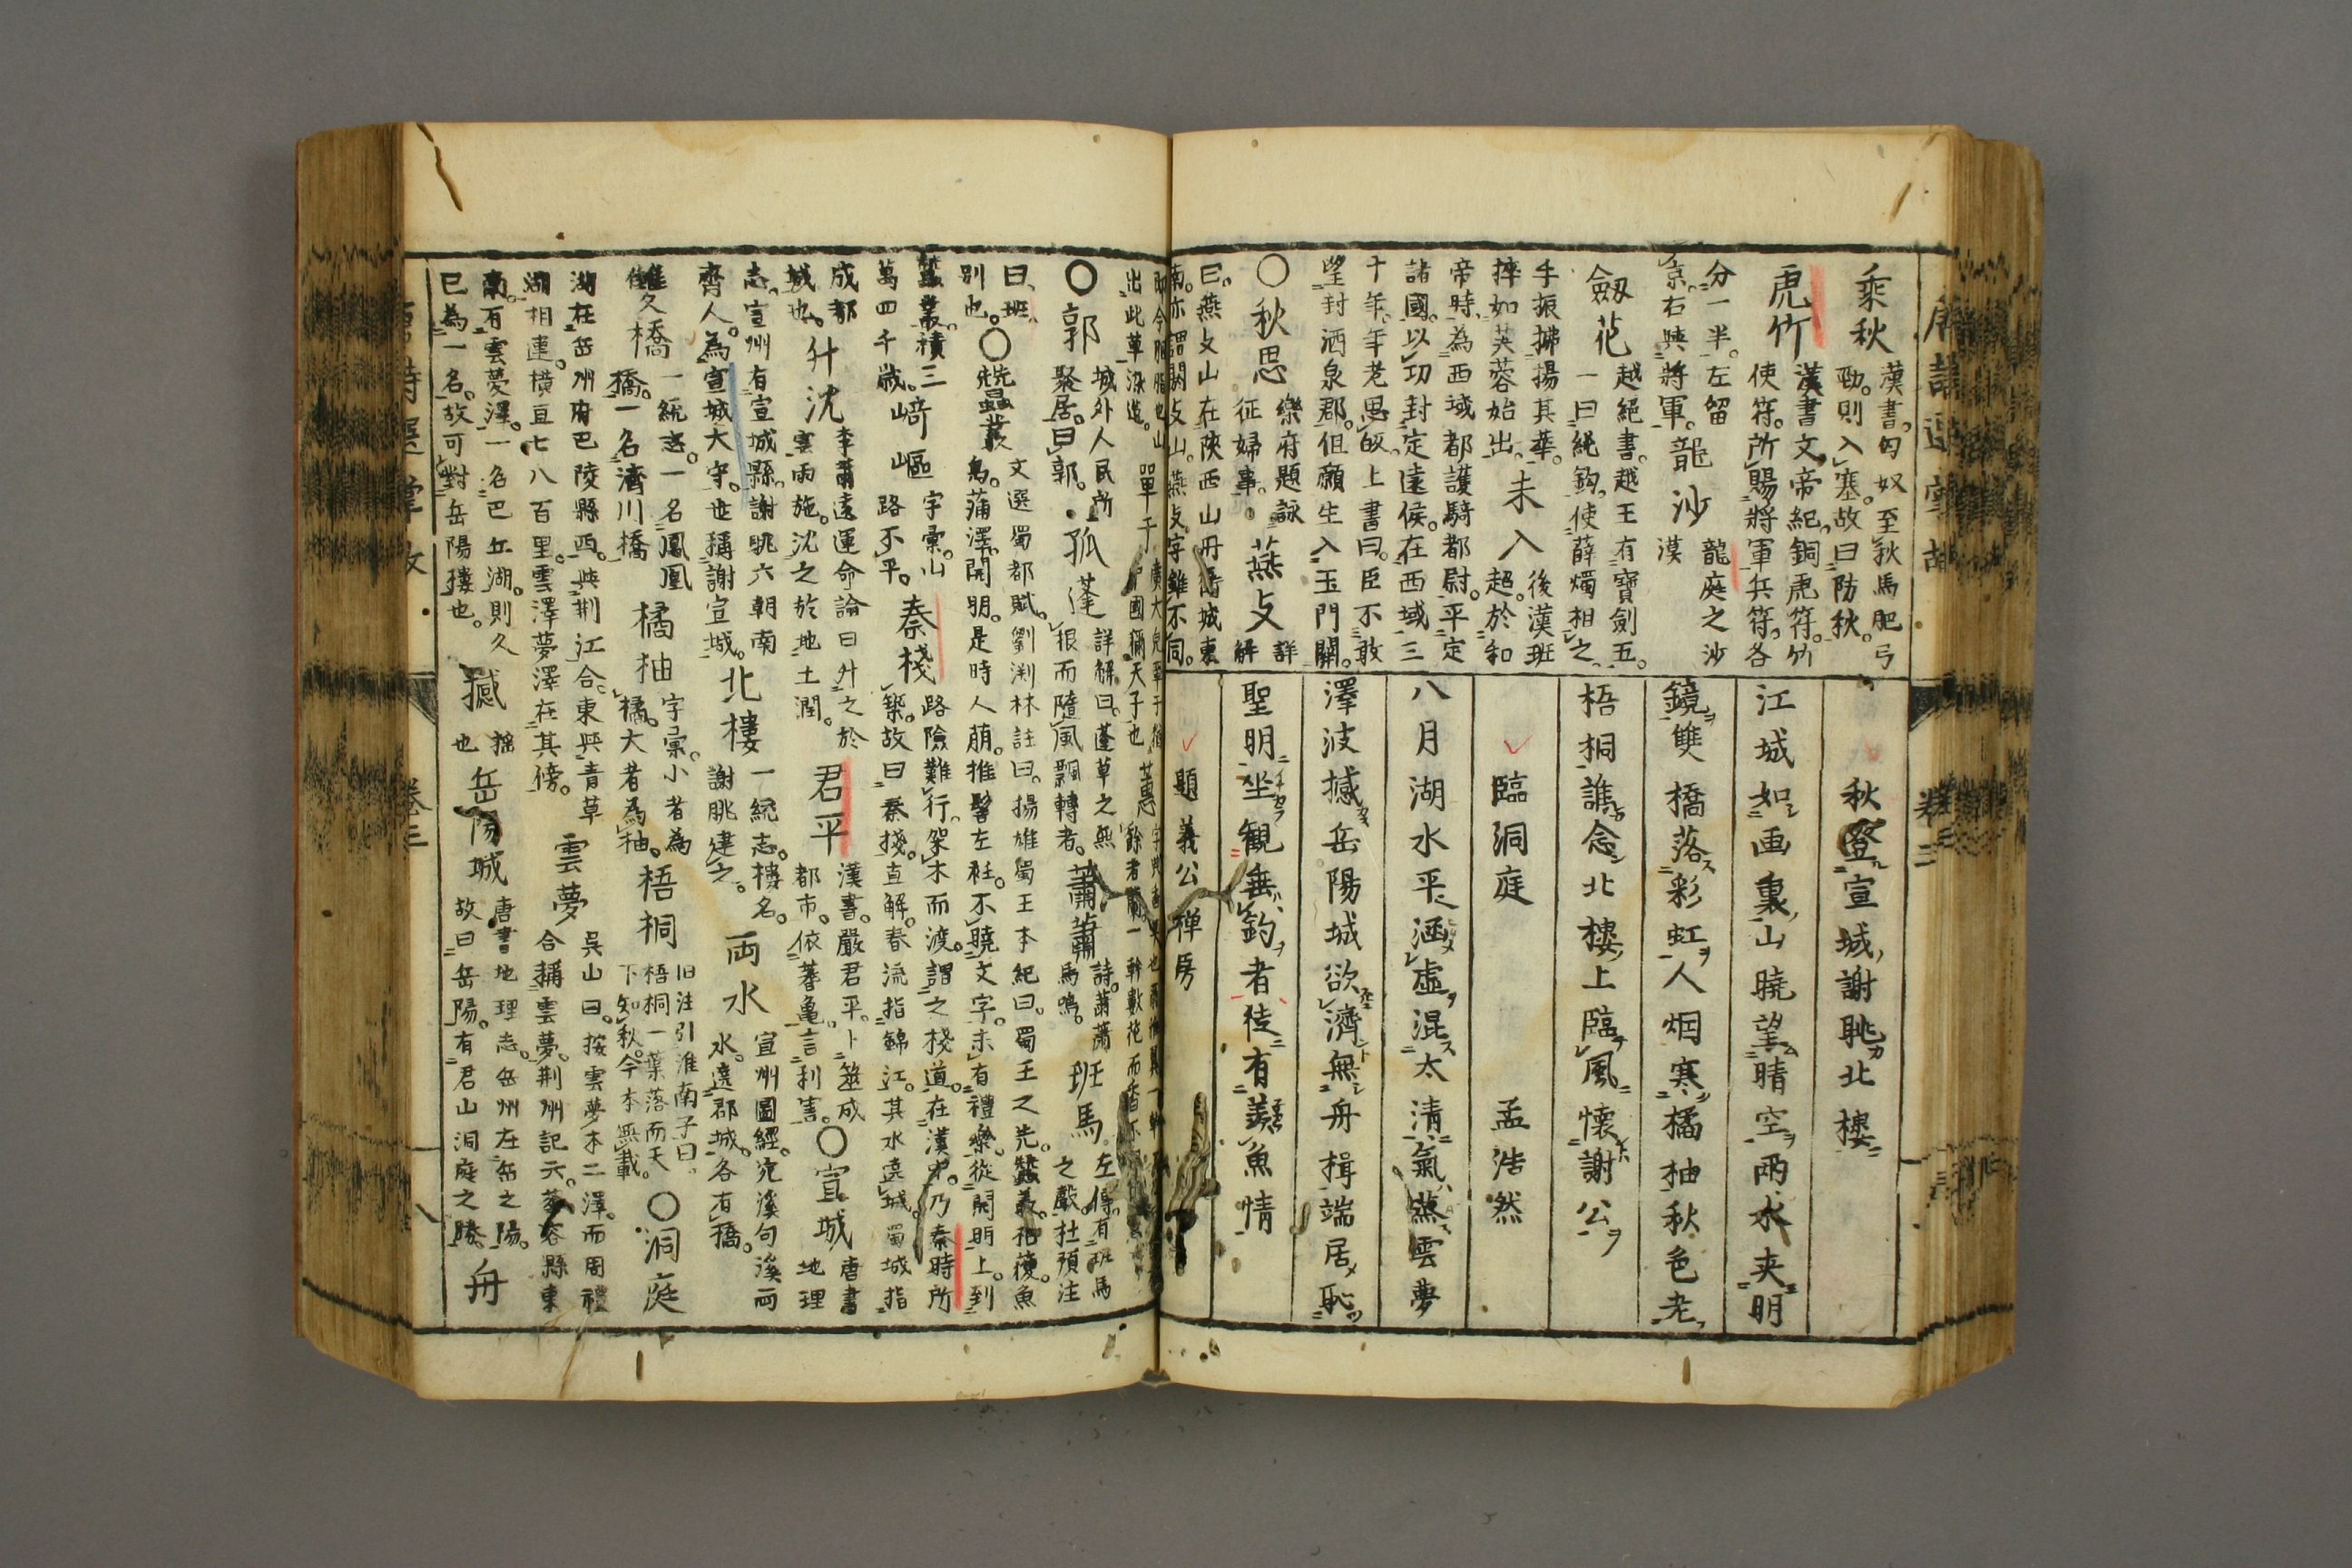 乘秋 漢書。匈奴至秋馬肥弓
勁。則入塞。故曰防秋。
虎竹 漢書文帝紀。銅虎符。竹
使符。所賜將軍兵符。各
分一半。左留
京。右與將軍。
龍沙 龍庭之沙
漠
劔花 越絕書。越王有寶劍五。
一曰純鈎。使薛燭相之。
手振拂揚其華。
捽如芙蓉始出。
未入 後漢班
超。於和
帝時。為西域都護騎都尉。平定
諸國。以功封定遠侯。在西域三
十年。年老思皈。上書曰。臣不敢
望封酒泉郡。但願生入玉門關。
○秋思 樂府題詠
征婦事。
燕支 詳
解
曰。燕支山在陝西山丹衛城東
南。亦謂闕支山。燕支字雖不同。
秋登宣城謝眺北樓
江城如画裏山曉望晴空兩水夾明
鏡雙橋落彩虹人烟寒橘柚秋色老
梧桐誰念北樓上臨風懷謝公
臨洞庭 孟浩然
八月湖水平涵虛混太清氣蒸雲夢
澤波撼岳陽城欲濟無舟楫端居恥
聖明坐観垂釣者徒有羨魚情
題義公禅房
出此草染造。
單于
國稱天子也
蕙
○郭 城外人民所
聚居。曰郭。
孤蓬 詳解曰。蓬草之無
根而隨風飄轉者。
蕭蕭 詩。蕭蕭
馬鳴。
班馬 左傳。有班馬
之聲。杜預注
曰。班。
別也。
○蚕叢 文選蜀都賦。劉渕林註曰。揚雄蜀王本紀曰。蜀王之先。蠶叢。柏濩。魚
鳧。蒲澤。開明。是時人萠。推髻左衽。不曉文字。未有禮樂。從開明上。到
蠶叢。積三
萬四千歲。
崎嶇 字彙。山
路不平。
秦棧 路險難行。架木而渡。謂之棧道。在漢中。乃秦時所
築。故曰秦棧。直解。春流指錦江。其水遶城。蜀城指
成都
城也。
升沈 李蕭遠運命論曰升之於
雲雨施。沈之於地土潤。
君平 漢書。嚴君平。卜筮成
都市。依蓍龜。言利害。
○宣城 唐書
地理
志。宣州有宣城縣。謝眺六朝南
齊人。為宣城大守。世稱謝宣城。
北樓 一統志。樓名。
謝眺建之。
両水 宣州圖經。宛溪句溪両
水。遶郡城。各有橋。
雙橋 一統志。一名鳳凰
橋。一名濟川橋
橘柚 字彙。小者為
橘。大者為柚。
梧桐 旧注引淮南子曰。
梧桐一葉落而天
下知秋。今本無載。
○洞庭
湖在岳州府巴陵縣西。與荆江合。東與青草
湖相連。橫亘七八百里。雲澤夢澤在其傍。
雲夢 吳山曰。按雲夢本二澤。而周禮
合稱雲夢。荆州記云。華容縣東
南。有雲夢澤。一名巴丘湖。則久
已為一名。故可對岳陽樓也。
撼 搖
也
岳陽城 唐書地理志。岳州在岳之陽。
故曰岳陽。有君山洞庭之勝。
舟